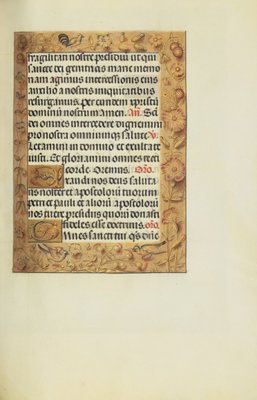 fragilitati nostre presidiu ut qui
sancte dei genitricis marie memo
riam agimus intercessionis eius
auxilio a nostris iniquitatibus
resurgamus. per eundem xpristu
dominu nostrum amen. An. S
dei omnes intercedere dignemini
pro nostra omniumqz salute V.
Letamini in domino et exultate
iusti. Et gloriamini omnes recti
corde. Oremus. Oro.
randi nos deus saluta
ris noster et apostolorum tuorum
petri et pauli et alioru apostoloru
nos tuere presidiis quoru donasti
fideles esse doctrinis. oro.
Omnes sancti tui qs dne